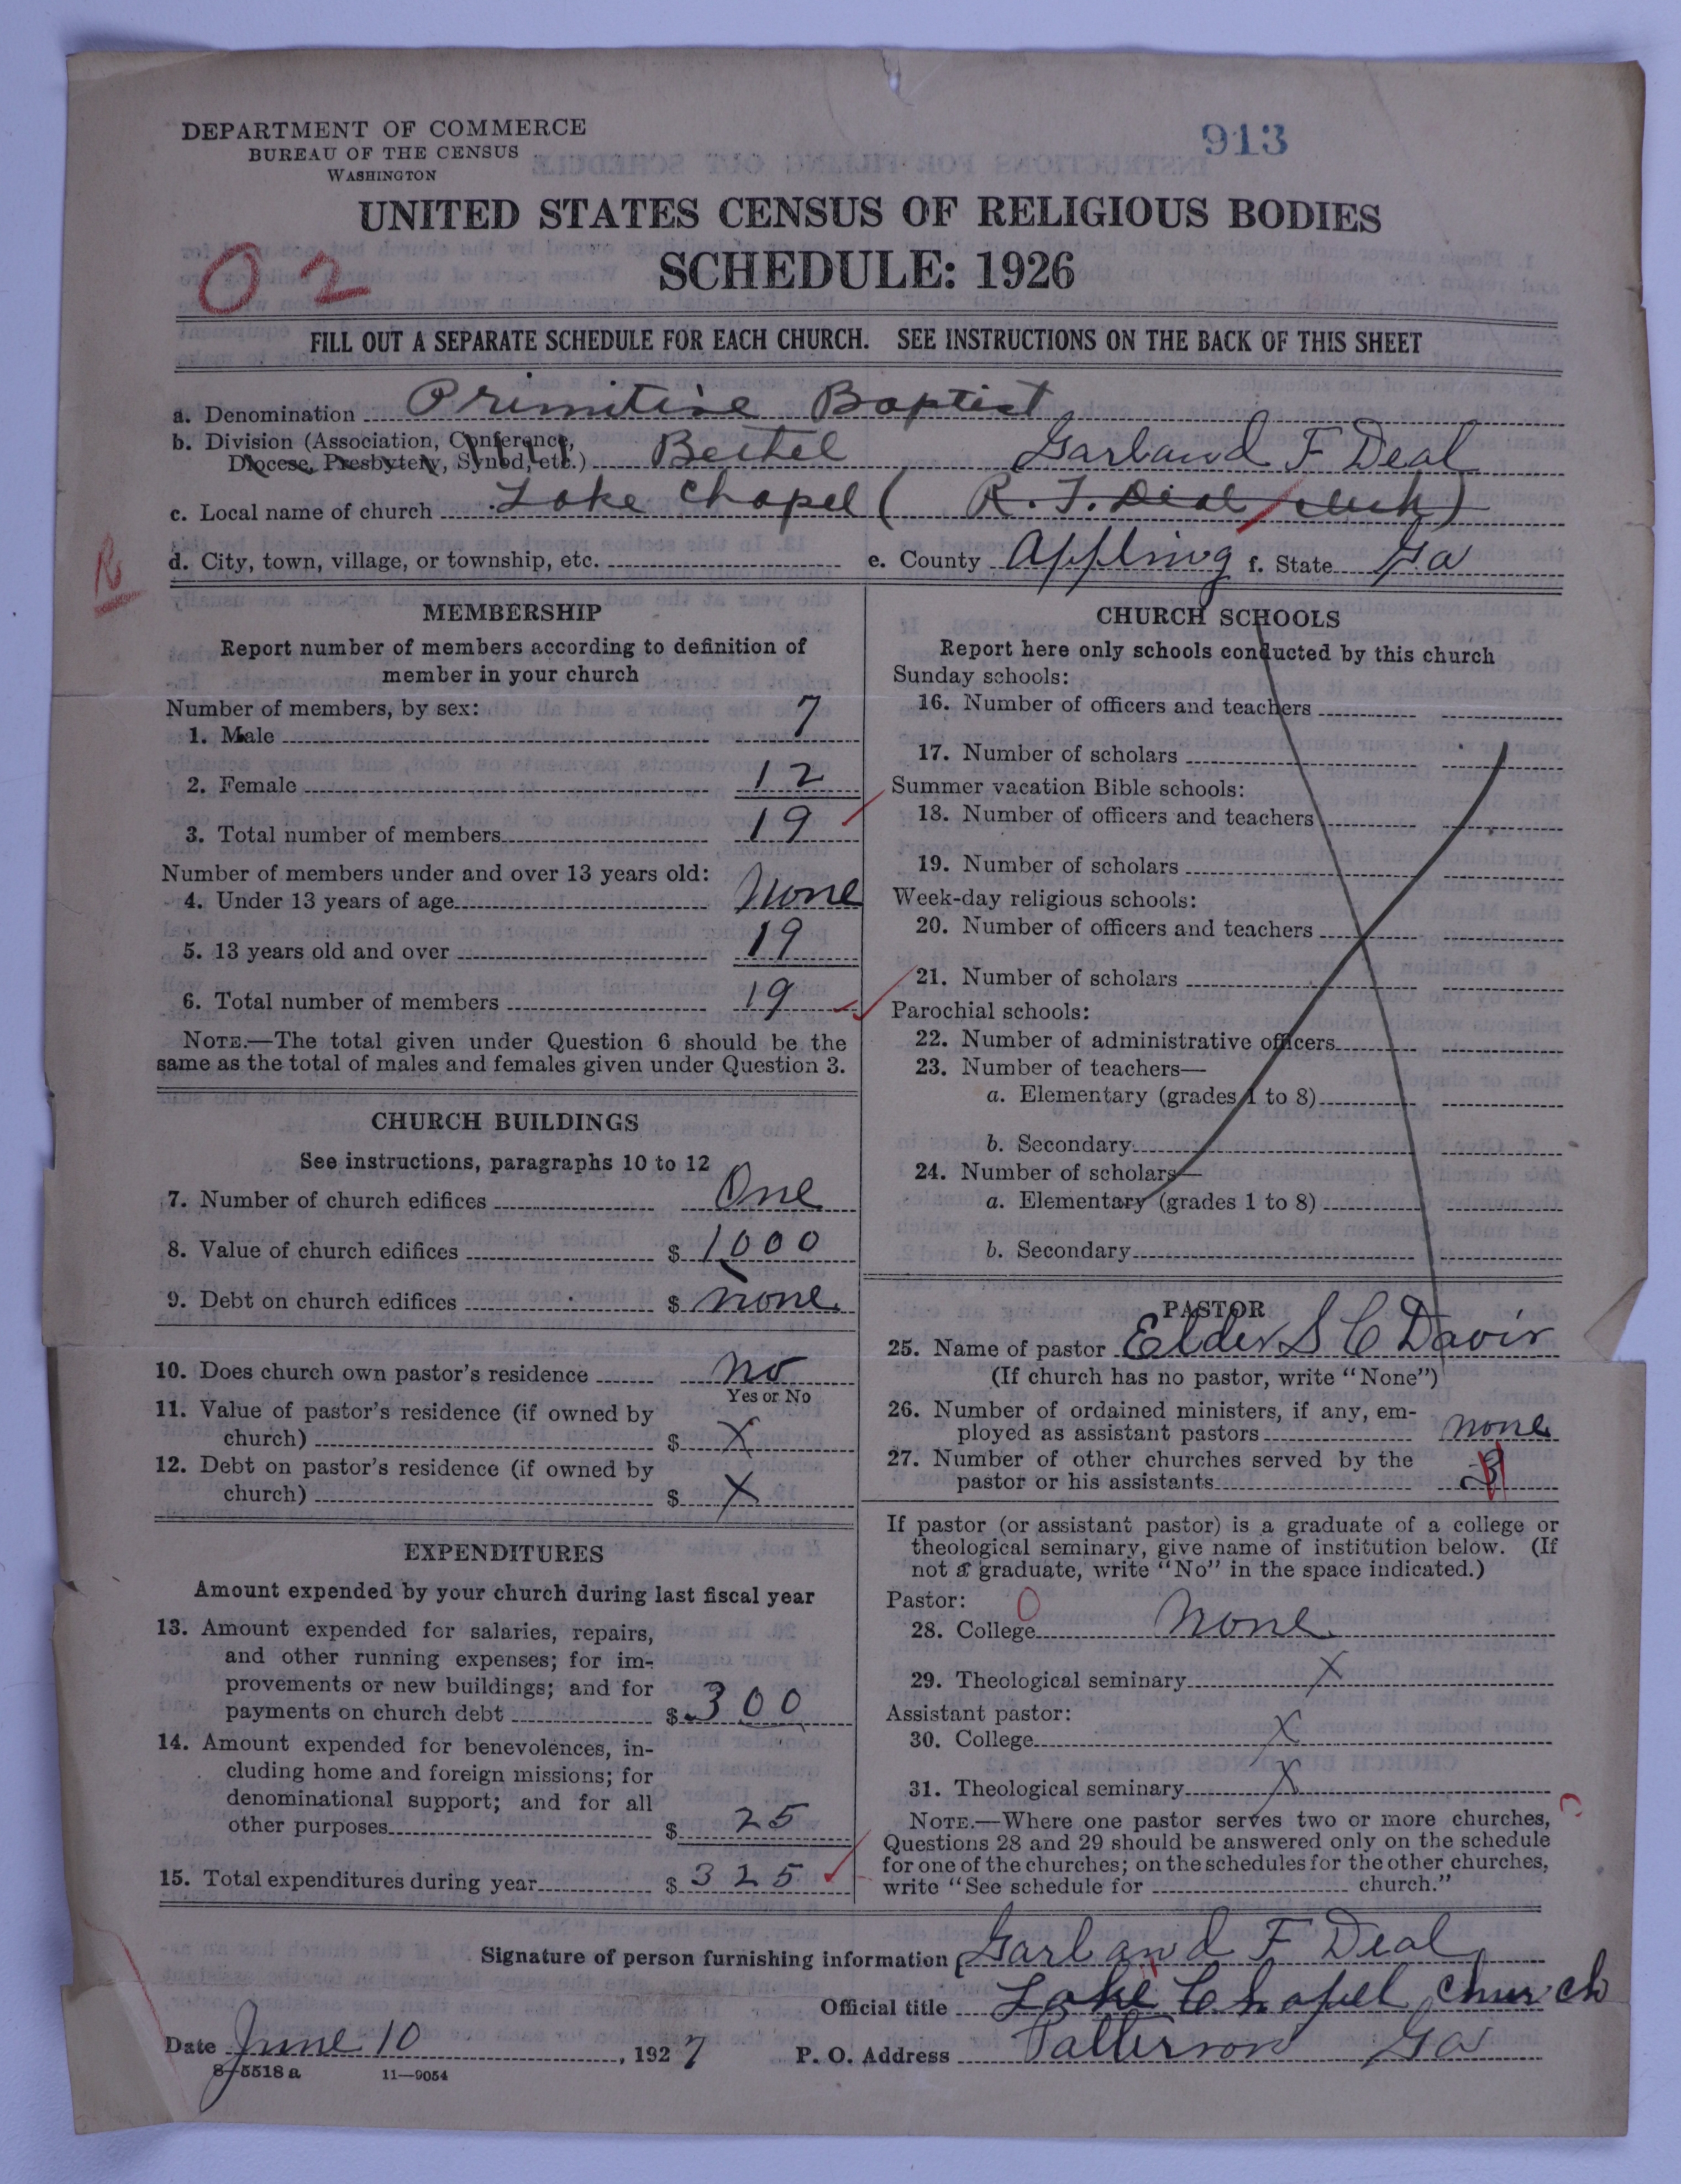 DEPARTMENT OF COMMERCE
BUREAU OF THE CENSUS
WASHINGTON
913
UNITED STATES CENSUS OF RELIGIOUS BODIES
SCHEDULE: 1926
O 2
FILL OUT A SEPARATE SCHEDULE FOR EACH CHURCH. SEE INSTRUCTIONS ON THE BACK OF THIS SHEET
a. Denomination Primitive Baptist
b. Division (Association, Conference, Diocese, Presbytery, Synod, etc.) Bethel Garland F Deal
c. Local name of church Lake Chapel ( R. T. Deal clerk)
d. City, town, village, or township, etc. e. County Appling f. State Ga
MEMBERSHIP
Report number of members according to definition of
member in your church
Number of members, by sex:
1. Male 7
2. Female 12
3. Total number of members 19
Number of members under and over 13 years old:
4. Under 13 years of age None
5. 13 years old and over 19
6. Total number of members 19
NOTE.—The total given under Question 6 should be the
same as the total of males and females given under Question 3.
CHURCH BUILDINGS
See instructions, paragraphs 10 to 12
7. Number of church edifices One
8. Value of church edifices $ 1000
9. Debt on church edifices $ none
10. Does church own pastor's residence no
Yes or No
11. Value of pastor's residence (if owned by
church) $ X
12. Debt on pastor's residence (if owned by
church) $ X
EXPENDITURES
Amount expended by your church during last fiscal year
13. Amount expended for salaries, repairs,
and other running expenses; for im-
provements or new buildings; and for
payments on church debt $ 300
14. Amount expended for benevolences, in-
cluding home and foreign missions; for
denominational support; and for all
other purposes $ 25
15. Total expenditures during year $ 325
CHURCH SCHOOLS
Report here only schools conducted by this church
Sunday schools:
16. Number of officers and teachers
17. Number of scholars
Summer vacation Bible schools:
18. Number of officers and teachers
19. Number of scholars
Week-day religious schools:
20. Number of officers and teachers
21. Number of scholars
Parochial schools:
22. Number of administrative officers
23. Number of teachers—
a. Elementary (grades 1 to 8)
b. Secondary
24. Number of scholars—
a. Elementary (grades 1 to 8)
b. Secondary
PASTOR
25. Name of pastor Elder S C Davis
(If church has no pastor, write "None")
26. Number of ordained ministers, if any, em-
ployed as assistant pastors none
27. Number of other churches served by the
pastor or his assistants 3
If pastor (or assistant pastor) is a graduate of a college or
theological seminary, give name of institution below. (If
not a graduate, write "No" in the space indicated.)
Pastor: 0
28. College None
29. Theological seminary X
Assistant pastor:
30. College X
31. Theological seminary X
NOTE.—Where one pastor serves two or more churches,
Questions 28 and 29 should be answered only on the schedule
for one of the churches; on the schedules for the other churches,
write "See schedule for church."
Signature of person furnishing information Garland F Deal
Official title Lake Chapel Church
Date June 10, 1927 P. O. Address Patterson Ga
8-5518 a 11—9054